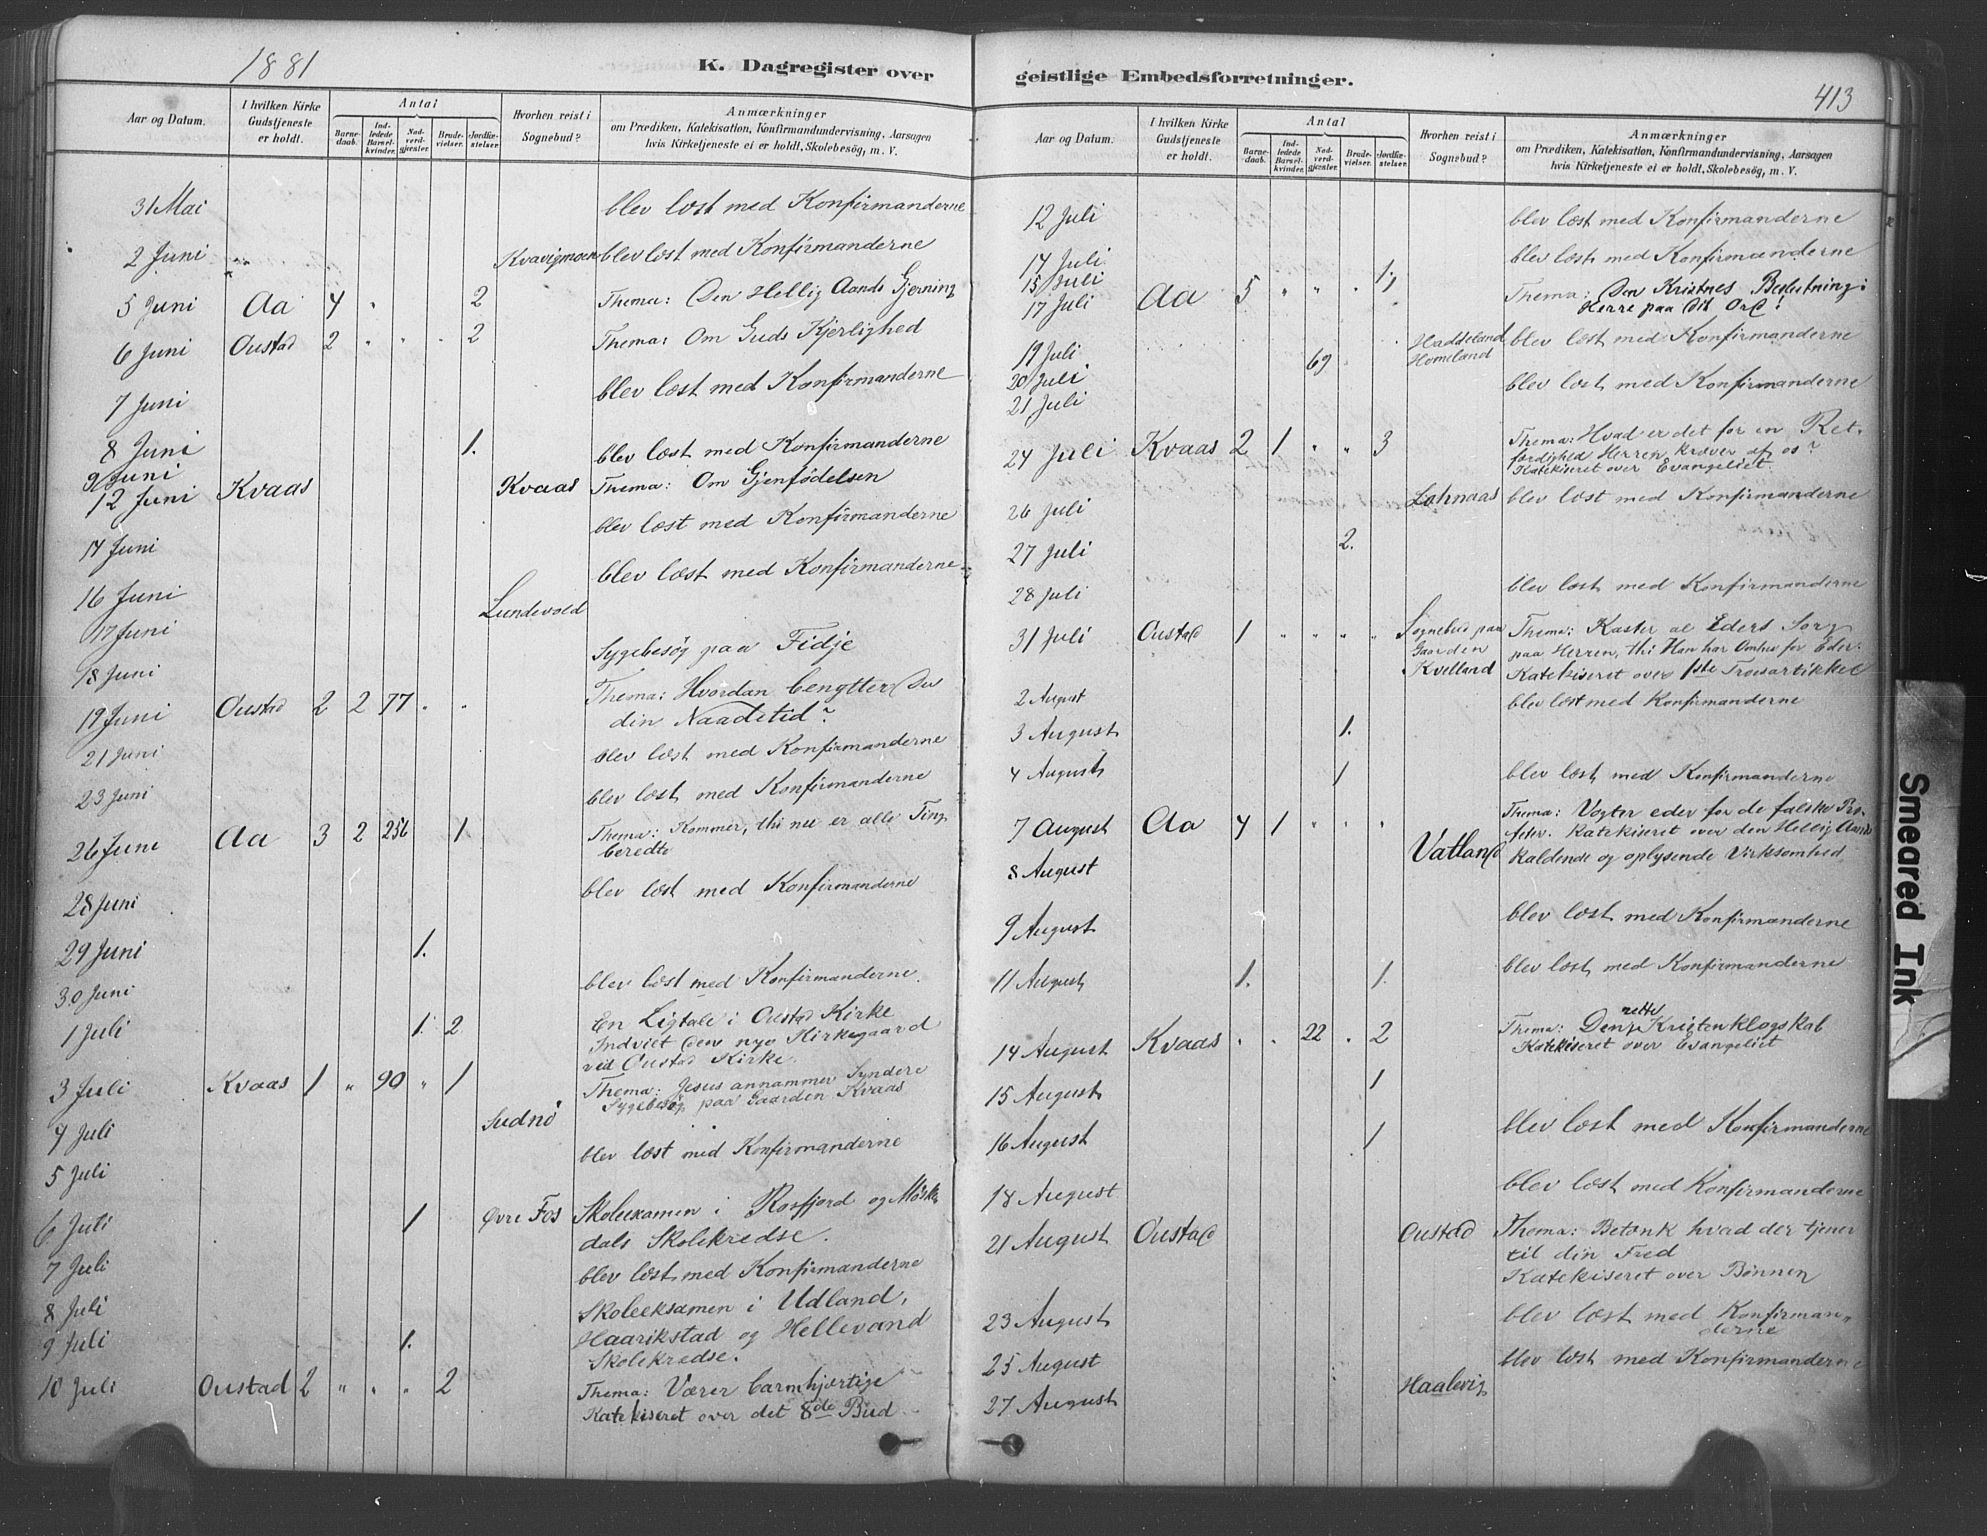 1881
K. Dagregister over
Aar og Datum.
I hvilken Kirke Gudstjeneste er holdt.
Antal
Barne-daab.
Ind-ledede Barsel-kvinder.
Nad-verd-gjæster.
Brude-vielser.
Jordfæ-stelser.
Hvorhen reist i Sognebud?
Anmærkninger
om Prædiken, Katekisation, Konfirmandundervisning, Aarsagen
hvis Kirketjeneste ei er holdt, Skolebesög, m. V.
31 Mai blev læst med Konfirmanderne
2 Juni Kvavigmoen blev læst med Konfirmanderne
5 Juni Aa 4 " 2 Thema: Den Hellig Aands Gjerning
6 Juni Oustad 2 " " " 2 Thema: Om Guds Kjerlighed
7 Juni blev læst med Konfirmanderne
8 Juni 1.
9 Juni blev læst med Konfirmanderne
12 Juni Kvaas Kvaas Thema: Om Gjenfödelsen
14 Juni blev læst med Konfirmanderne
16 Juni blev læst med Konfirmanderne
17 Juni Lundevold
18 Juni Sygebesög paa Fidje
19 Juni Oustad 2 2 77 " " Thema: Hvordan benytter Du
din Naadetid?
21 Juni blev læst med Konfirmanderne
23 Juni blev læst med Konfirmanderne
26 Juni Aa 3 2 256 1 Thema: Kommer, thi nu er alle Ting
beredte
28 Juni blev læst med Konfirmanderne
29 Juni 1.
30 Juni blev læst med Konfirmanderne.
1 Juli 1. 2 En Ligtale i Oustad Kirke
Indviet den nye Kirkegaard
ved Oustad Kirke.
3 Juli Kvaas 1 " 90 " 1 Thema: Jesus annammer Syndere
Sygebesög paa Gaarden Kvaas
4 Juli Sudnö
5 Juli blev læst med Konfirmanderne
6 Juli 1 Øvre Fos Skoleexamen i Rosfjord og
dals Skolekredse.
7 Juli blev læst med Konfirmanderne
8 Juli Skoleeksamen i Udland,
9 Juli 1. Haarikstad og Hellevand
Skolekredse.
10 Juli Oustad 2 " " " 2 Thema: Værer barmhjærtige
Katekiseret over det 8de Bud
geistlige Embedsforretninger.
413
Aar og Datum.
I hvilken Kirke Gudstjeneste er holdt.
Antal
Barne-daab.
Ind-ledede Barsel-kvinder.
Nad-verd-gjæster.
Brude-vielser.
Jordfæ-stelser.
Hvorhen reist i Sognebud?
Anmærkninger
om Prædiken, Katekisation, Konfirmandundervisning, Aarsagen
hvis Kirketjeneste ei er holdt, Skolebesög, m. V.
12 Juli blev læst med Konfirmanderne
14 Juli blev læst med Konfirmanderne
15 Juli 1
17 Juli Aa 5 " " " Thema: Den Kristnes Beslutning:
Herre paa dit Ord!
19 Juli Haddeland blev læst med Konfirmanderne
20 Juli 69 Homeland
21 Juli blev læst med Konfirmanderne
24 Juli Kvaas 2 1 " " 3 Thema: Hvad er det for en Ret-
færdighed Herren kræver af os?
Katekiseret over Evangeliet.
26 Juli blev læst med Konfirmanderne
27 Juli 2.
28 Juli blev læst med Konfirmanderne
31 Juli Oustad 1 " " " " Sognebud paa Gaarden Kvelland Thema: Kaster al Eders Sorg
paa Herren, thi Han har Omhu for Eder.
Katekiseret over 1ste Trosartikkel
2 August blev læst med Konfirmanderne
3 August 1.
4 August 1 blev læst med Konfirmanderne
7 August Aa 4 1 " " " Thema: Vogter eder for de falske Pro-
feter. Katekiseret over den Hellig Aands
8 August Vatland kaldende og oplysende Virksomhed
9 August blev læst med Konfirmanderne
11 August 1. 1. blev læst med Konfirmanderne
14 August Kvaas " " 22 " 2 Thema: Den rette Kristenklogskab
Katekiseret over Evangeliet
15 August 1
16 August 1 blev læst med Konfirmanderne
18 August blev læst med Konfirmanderne
21 August Oustad Oustad Thema: Betænk hvad der tjener
til din Fred
Katekiseret over Bønnen
23 August blev læst med Konfirman-
derne
25 August blev læst med Konfirmanderne
27 August Haalevig
Smeared Ink